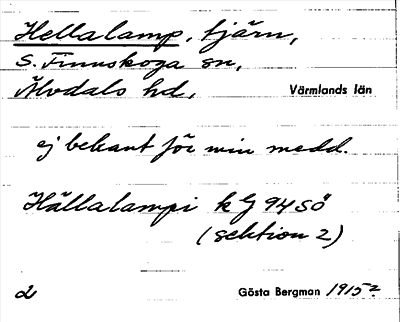 Hellalamp, tjärn,
S. Finnskoga sn,
Älvdals hd, Värmlands län
ej bekant för min medd.
Hällalampi kg 94 SÖ
(sektion 2)
2 Gösta Bergman 1915?